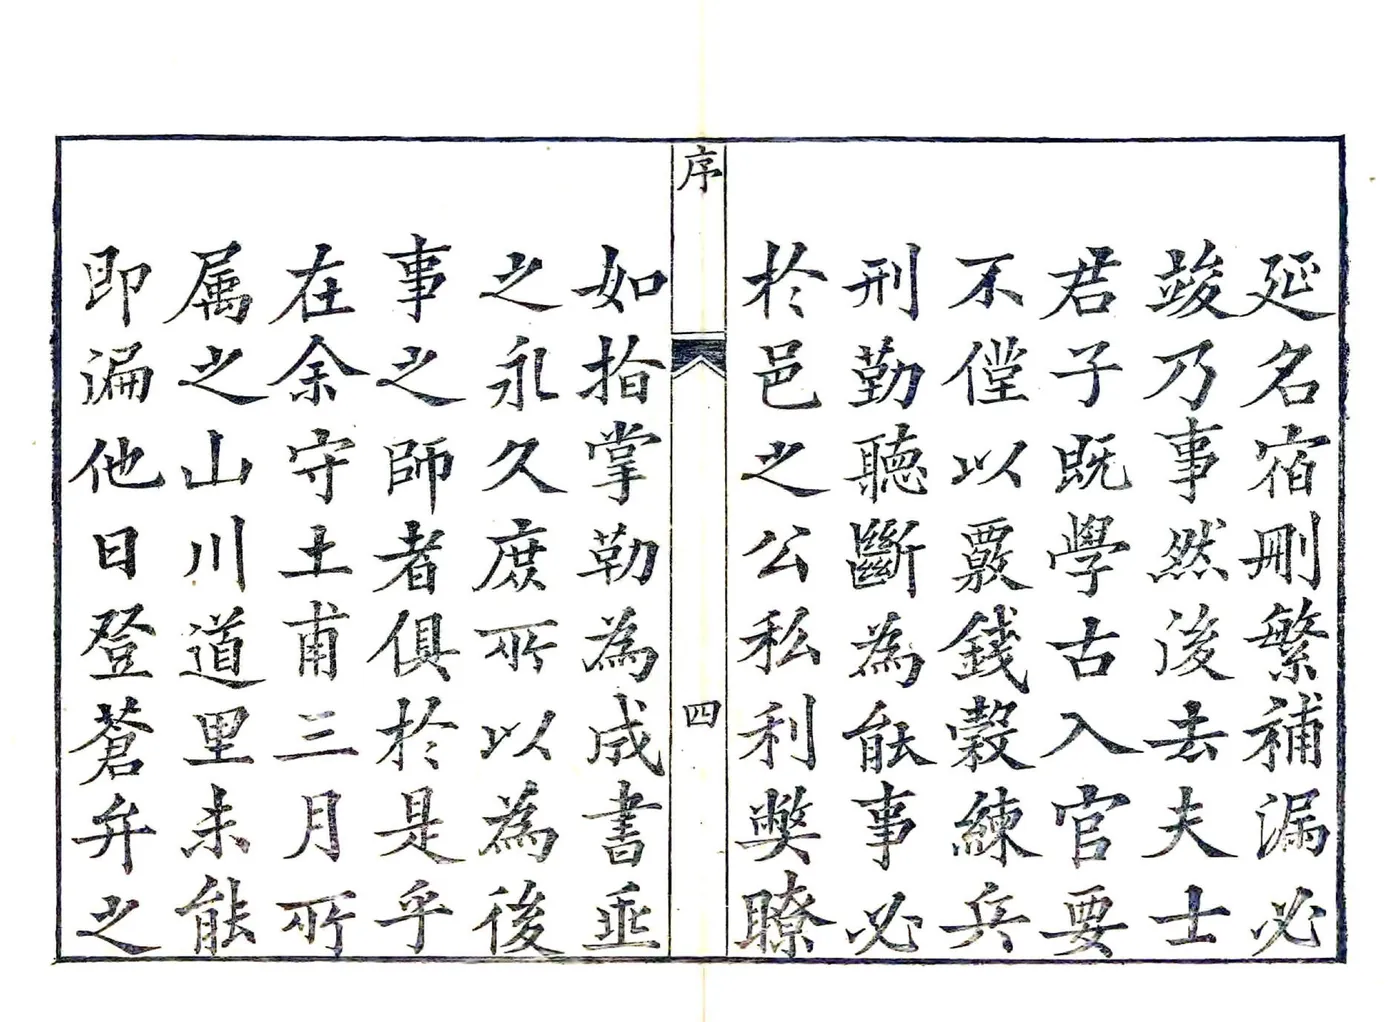 延名宿刪繁補漏必
竣乃事然後去夫士
君子既學古入官要
不僅以覈錢穀練兵
刑勤聽斷為能事必
於邑之公私利弊瞭
序
四
如指掌勒為成書垂
之永久庶所以為後
事之師者俱於是乎
在余守土甫三月所
属之山川道里未能
即遍他日登蒼弁之